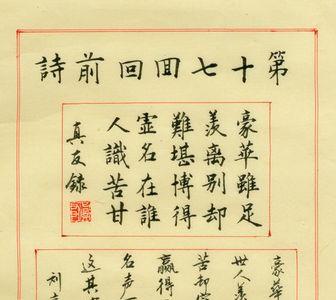 第十七囬回前詩
豪華雖足
羡离别却
難堪博得
虚名在誰
人識苦甘
真友錄
豪華
世人羡
苦却
赢得
名声
这其
刘